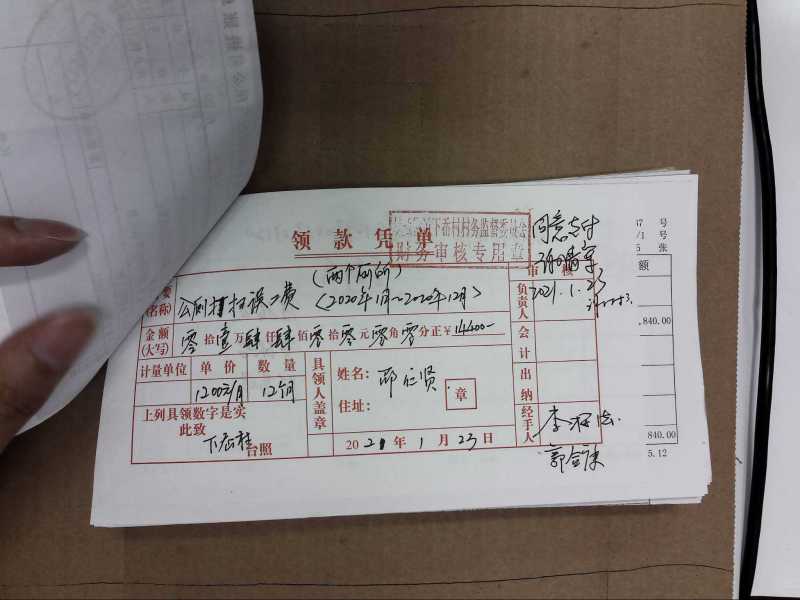 领款凭单
下岙村村务监督委员会
财务审核专用章
同意支付
2021.1.23
审核
要
(名称)
公厕打扫误工费
(两个厕所)
(2020年1月~2020年12月)
金额
(大写)
零拾壹万肆仟肆佰零拾零元零角零分正¥14400-
计量单位 单价 数量
1200元/月 12个月
上列具领数字是实
此致
台照
具领人盖章
姓名:邱仁贤
住址:
章
2021年1月23日
负责人
会计
出纳
经手人
号
号
张
额
,840.00
840.00
5.12